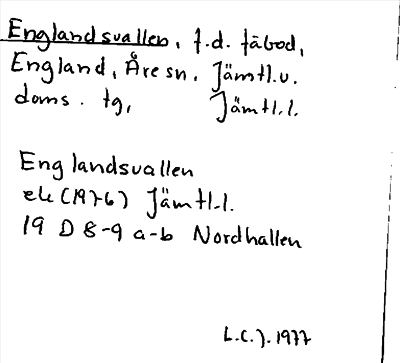 Englandsvallen, f.d. fäbod,
England, Åre sn, Jämtl.v.
doms. tg, Jämtl.l.
Englandsvallen
ek (1976) Jämtl.l.
19 D 8-9 a-b Nordhallen
L.C.J. 1977